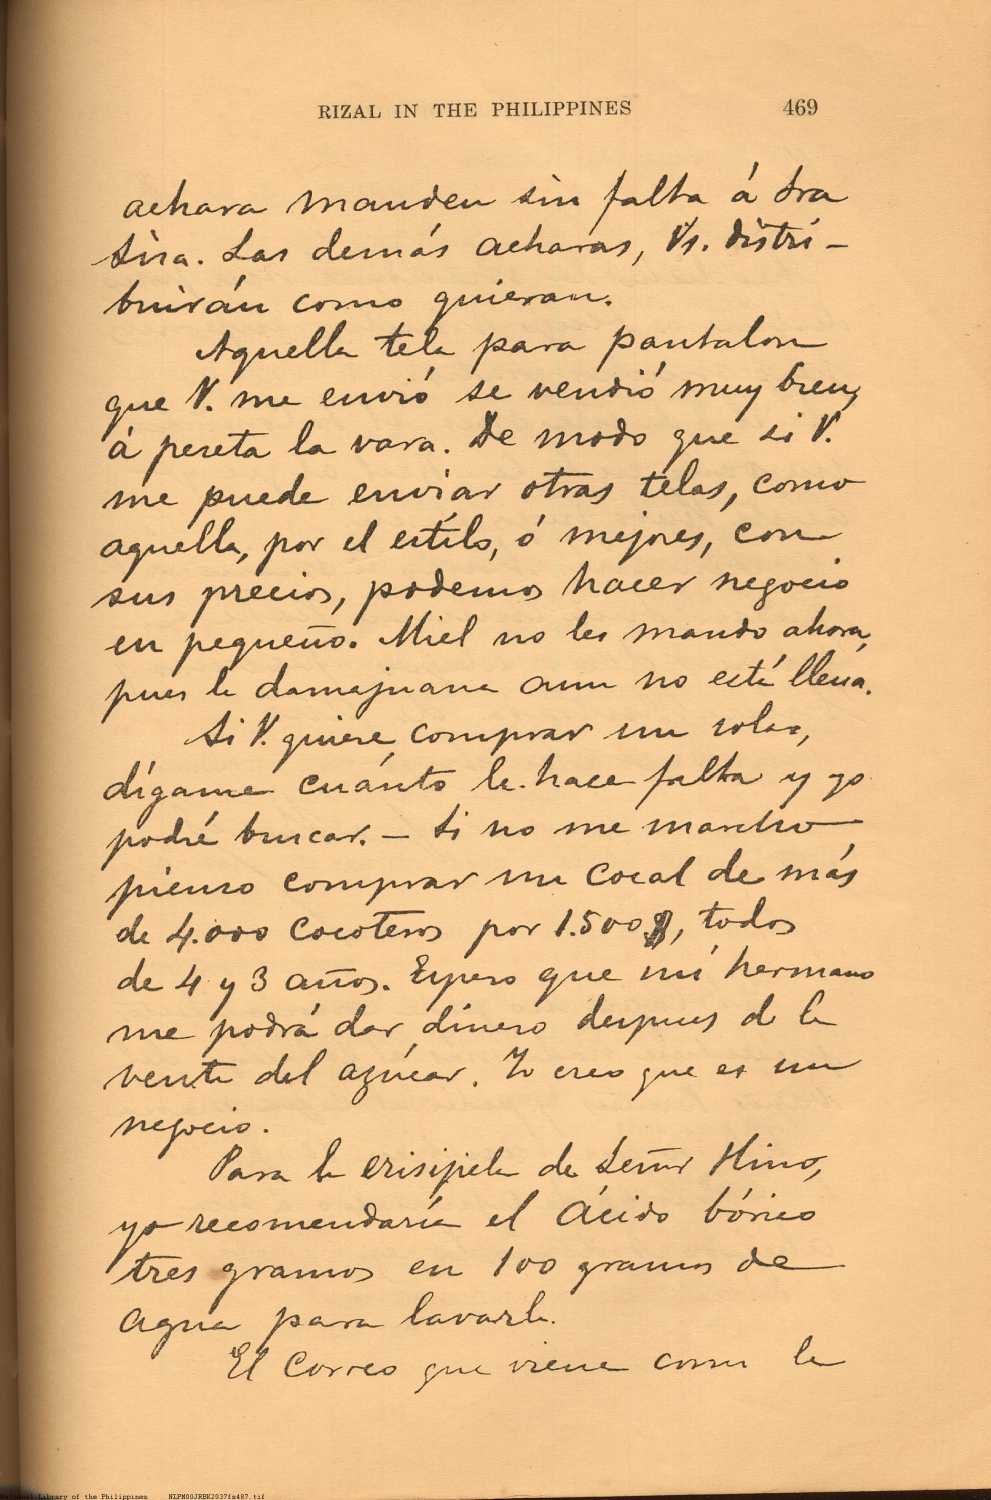 RIZAL IN THE PHILIPPINES 469
achara manden sin falta á tra
Sisa. Las demás acharas, Vs. distri-
buirán como quieran.
Aquella tela para pantalon
que V. me envió se vendió muy bien,
á peseta la vara. De modo que si V.
me puede enviar otras telas, como
aquella, por el estilo, ó mejores, con
sus precios, podemos hacer negocio
en pequeño. Miel no les mando ahora,
pues la damajuana aun no está llena.
Si V. quiere comprar un solar,
dígame cuánto le hace falta y yo
podré buscar. — Si no me marcho
pienso comprar un cocal de más
de 4.000 cocoteros por 1.500 $, todos
de 4 y 3 años. Espero que mi hermano
me podrá dar dinero despues de la
venta del azúcar. Yo creo que es un
negocio.
Para la erisipela de Señor Hino,
yo recomendaría el Ácido bórico
tres gramos en 100 gramos de
agua para lavarla.
El Correo que viene como la
National Library of the Philippines NLPM00JRBK2037fs487.tif